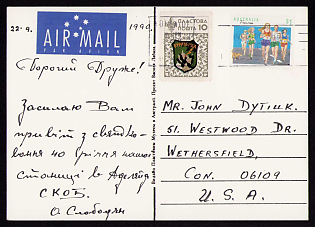 22-9. 1990.
AIR MAIL
PAR AVION
ПЛАСТОВА
ПОШТА 10
AUSTRALIA $1
Дорогий Друже!
Засилаю Вам
привіт з святку-
вання 40 річчя нашої
станиці в Аделяїді
СКОБ.
О. Слободян
MR. JOHN DYTIUK.
51. WESTWOOD DR.
WETHERSFIELD,
CON. 06109
U. S. A.